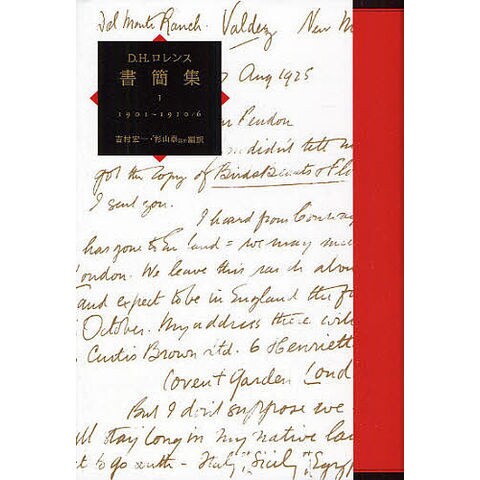 Del Monte Ranch. Valdez New M
D.H.ロレンス
書簡集
1
1901~1910/6
吉村宏一・杉山泰ほか編訳
Aug 1925
didn't tell
got the copy of Birds Beasts & Fl
I sent you.
I heard from Conway
has gone to England = we may
London. We leave this ranch abou
and expect to be in England the fi
October. My address there will
Curtis Brown Ltd. 6 Henriett
Covent Garden Lond
But I don't suppose we
stay long in my native la
t to go south - Italy, Sicily, Egyp